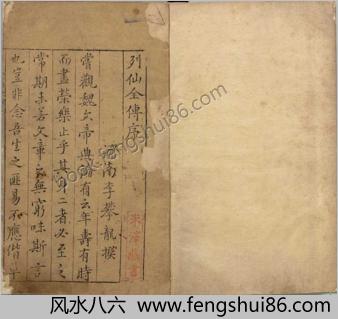 列仙全傳序
濟南李攀龍撰
嘗觀魏文帝典論有云年壽有時
而盡榮樂止乎其身二者必至之
常期未若文章之無窮味斯言
也豈非念吾生之匪易不應偕草
www.fengshui86.com
风水八六 www.fengshui86.com